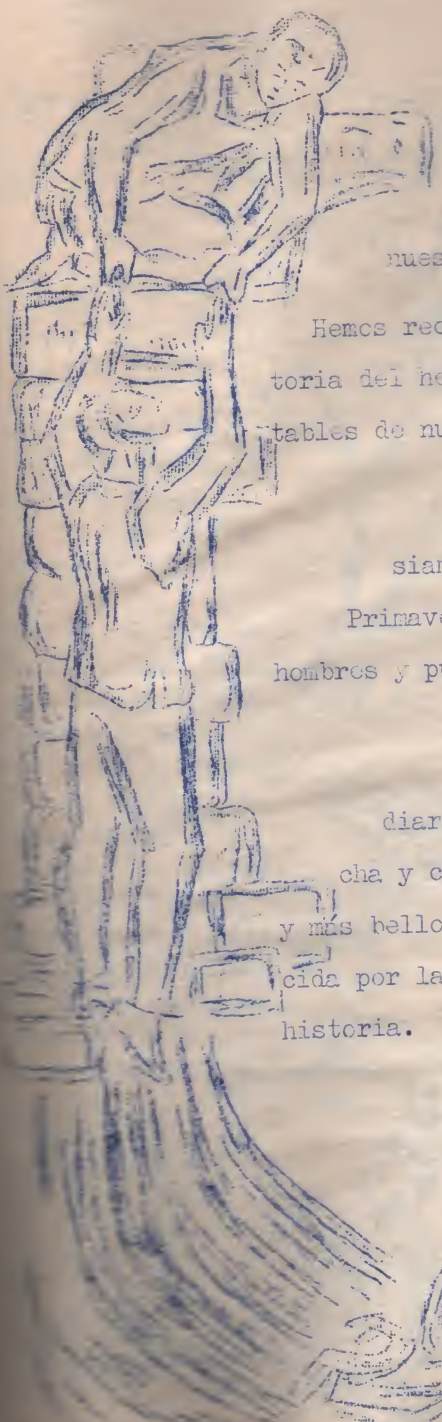 nues
Hemos rec
toria del he
tables de nu
sian
Primave
hombres y pu
diar
cha y c
y más bello
cida por la
historia.